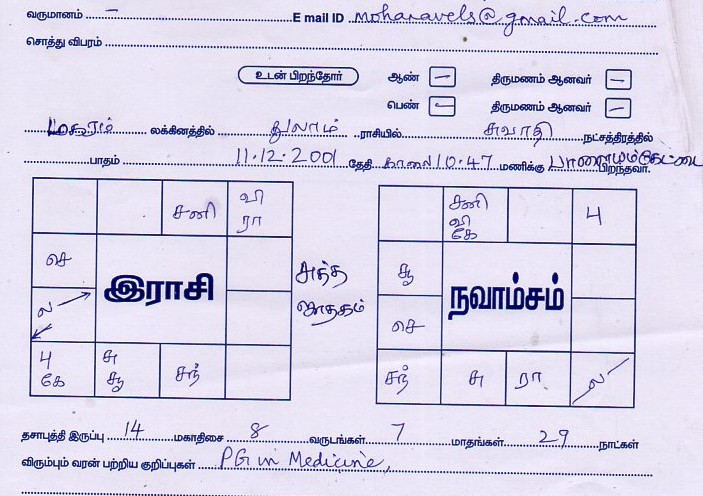 வருமானம் – E mail ID mohanavels@gmail.com
சொத்து விபரம்
உடன் பிறந்தோர் ஆண் – திருமணம் ஆனவர் –
பெண் – திருமணம் ஆனவர் –
மகரம் லக்கினத்தில் துலாம் ராசியில் சுவாதி நட்சத்திரத்தில்
பாதம் 11.12.2001 தேதி காலை 10.47 மணிக்கு பாளையம்கோட்டை பிறந்தவர்.
சனி வி
ரா
செ
இராசி
ல
பு
கே
சு
சூ
சந்
அந்த
ஜாதகம்
சனி
வி
கே
பு
சூ
நவாம்சம்
செ
சந் சு ரா ல
தசாபுத்தி இருப்பு 14 மகாதிசை 8 வருடங்கள் 7 மாதங்கள் 29 நாட்கள்
விரும்பும் வரன் பற்றிய குறிப்புகள் PG in Medicine,